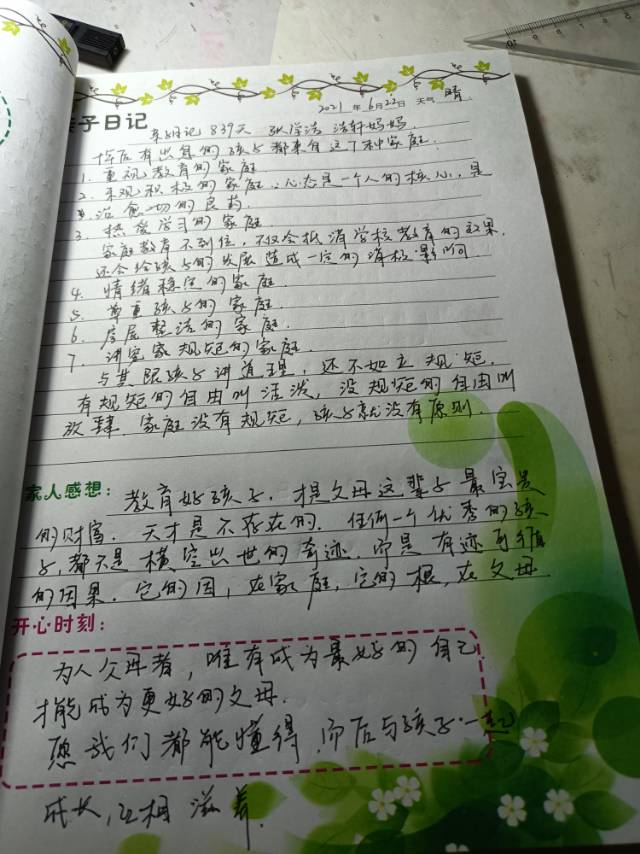 亲子日记
2021年6月22日 天气 晴
亲子日记839天 张洋浩 浩轩妈妈
十年后有出息的孩子都来自这7种家庭:
1. 重视教育的家庭
2. 乐观积极的家庭:心态是一个人的核心,是
治愈一切的良药.
3. 热爱学习的家庭.
家庭教育不到位,不仅会抵消学校教育的效果,
还会给孩子的发展造成一定的消极影响.
4. 情绪稳定的家庭.
5. 尊重孩子的家庭.
6. 房屋整洁的家庭.
7. 讲究家规矩的家庭.
与其跟孩子讲道理,还不如立规矩.
有规矩的自由叫活泼,没规矩的自由叫
放肆.家庭没有规矩,孩子就没有原则.
家人感想:教育好孩子.才是父母这辈子最宝贵
的财富.天才是不存在的.任何一个优秀的孩
子,都不是横空出世的奇迹.而是有迹可循
的因果.它的因,在家庭,它的根,在父母.
开心时刻:
为人父母者,唯有成为最好的自己
才能成为更好的父母.
愿我们都能懂得,而后与孩子一起
成长,互相滋养.